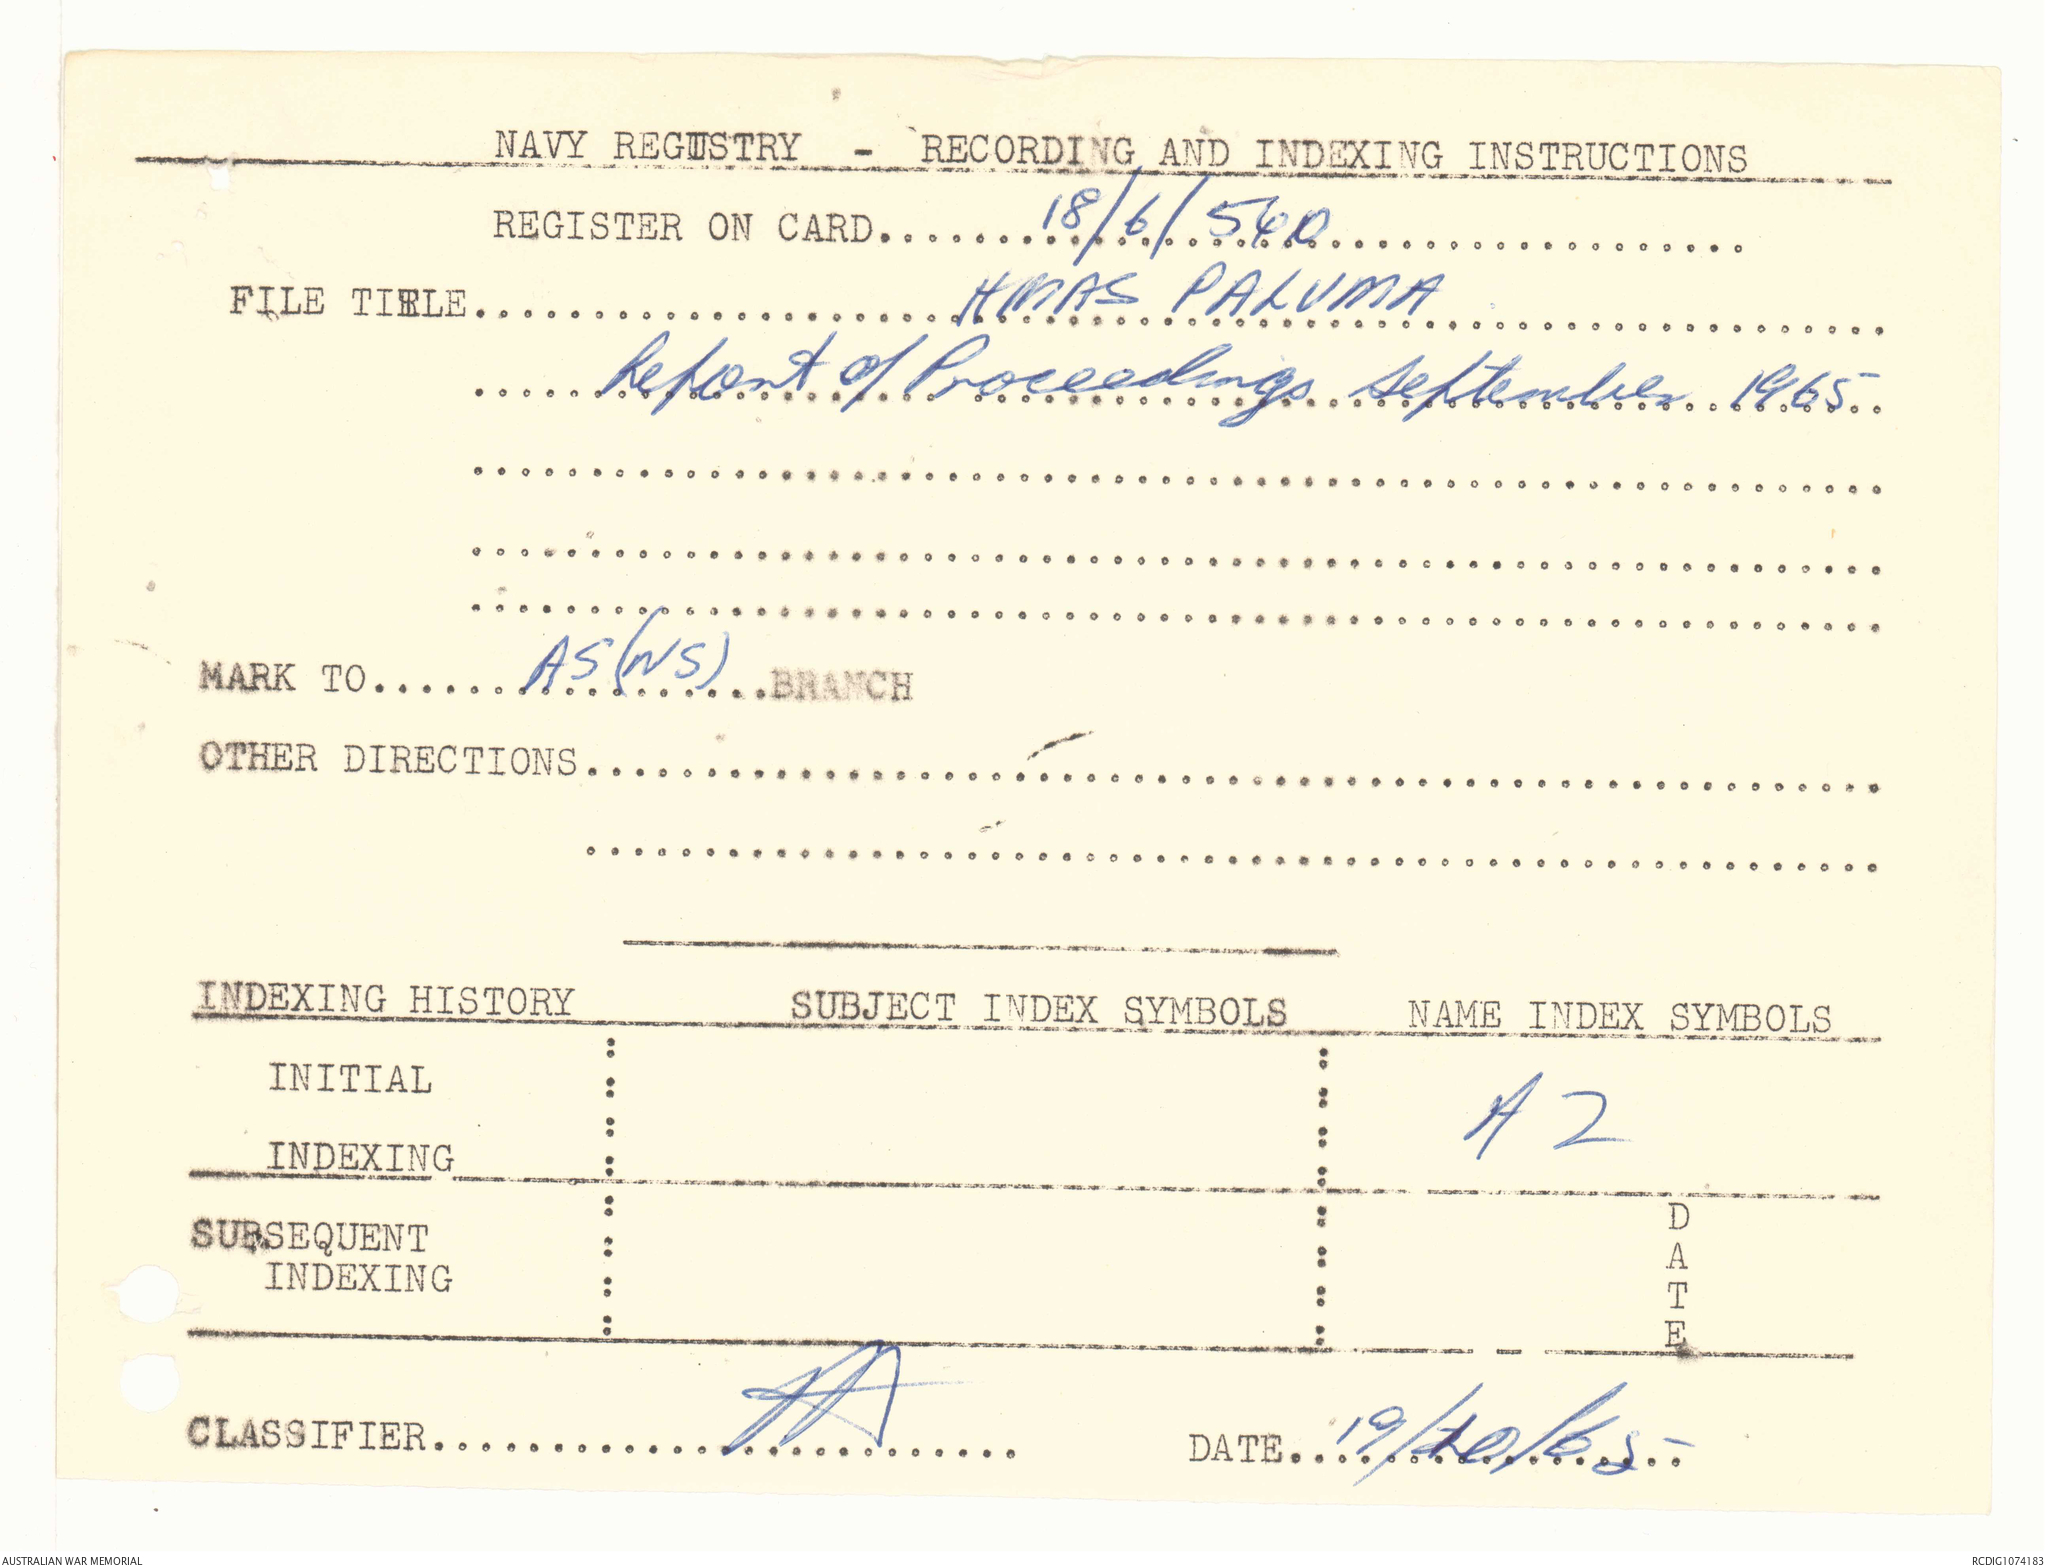 NAVY REGISTRY - RECORDING AND INDEXING INSTRUCTIONS
REGISTER ON CARD........18/6/560..................
FILE TITLE....................HMAS PALUMA....................
Report of Proceedings September 1965
MARK TO......AS(NS)......BRANCH
OTHER DIRECTIONS......................................................
INDEXING HISTORY SUBJECT INDEX SYMBOLS NAME INDEX SYMBOLS
INITIAL
INDEXING
A2
SUBSEQUENT
INDEXING
D
A
T
E
CLASSIFIER......................... DATE..19/10/65..
AUSTRALIAN WAR MEMORIAL
RCDIG1074183